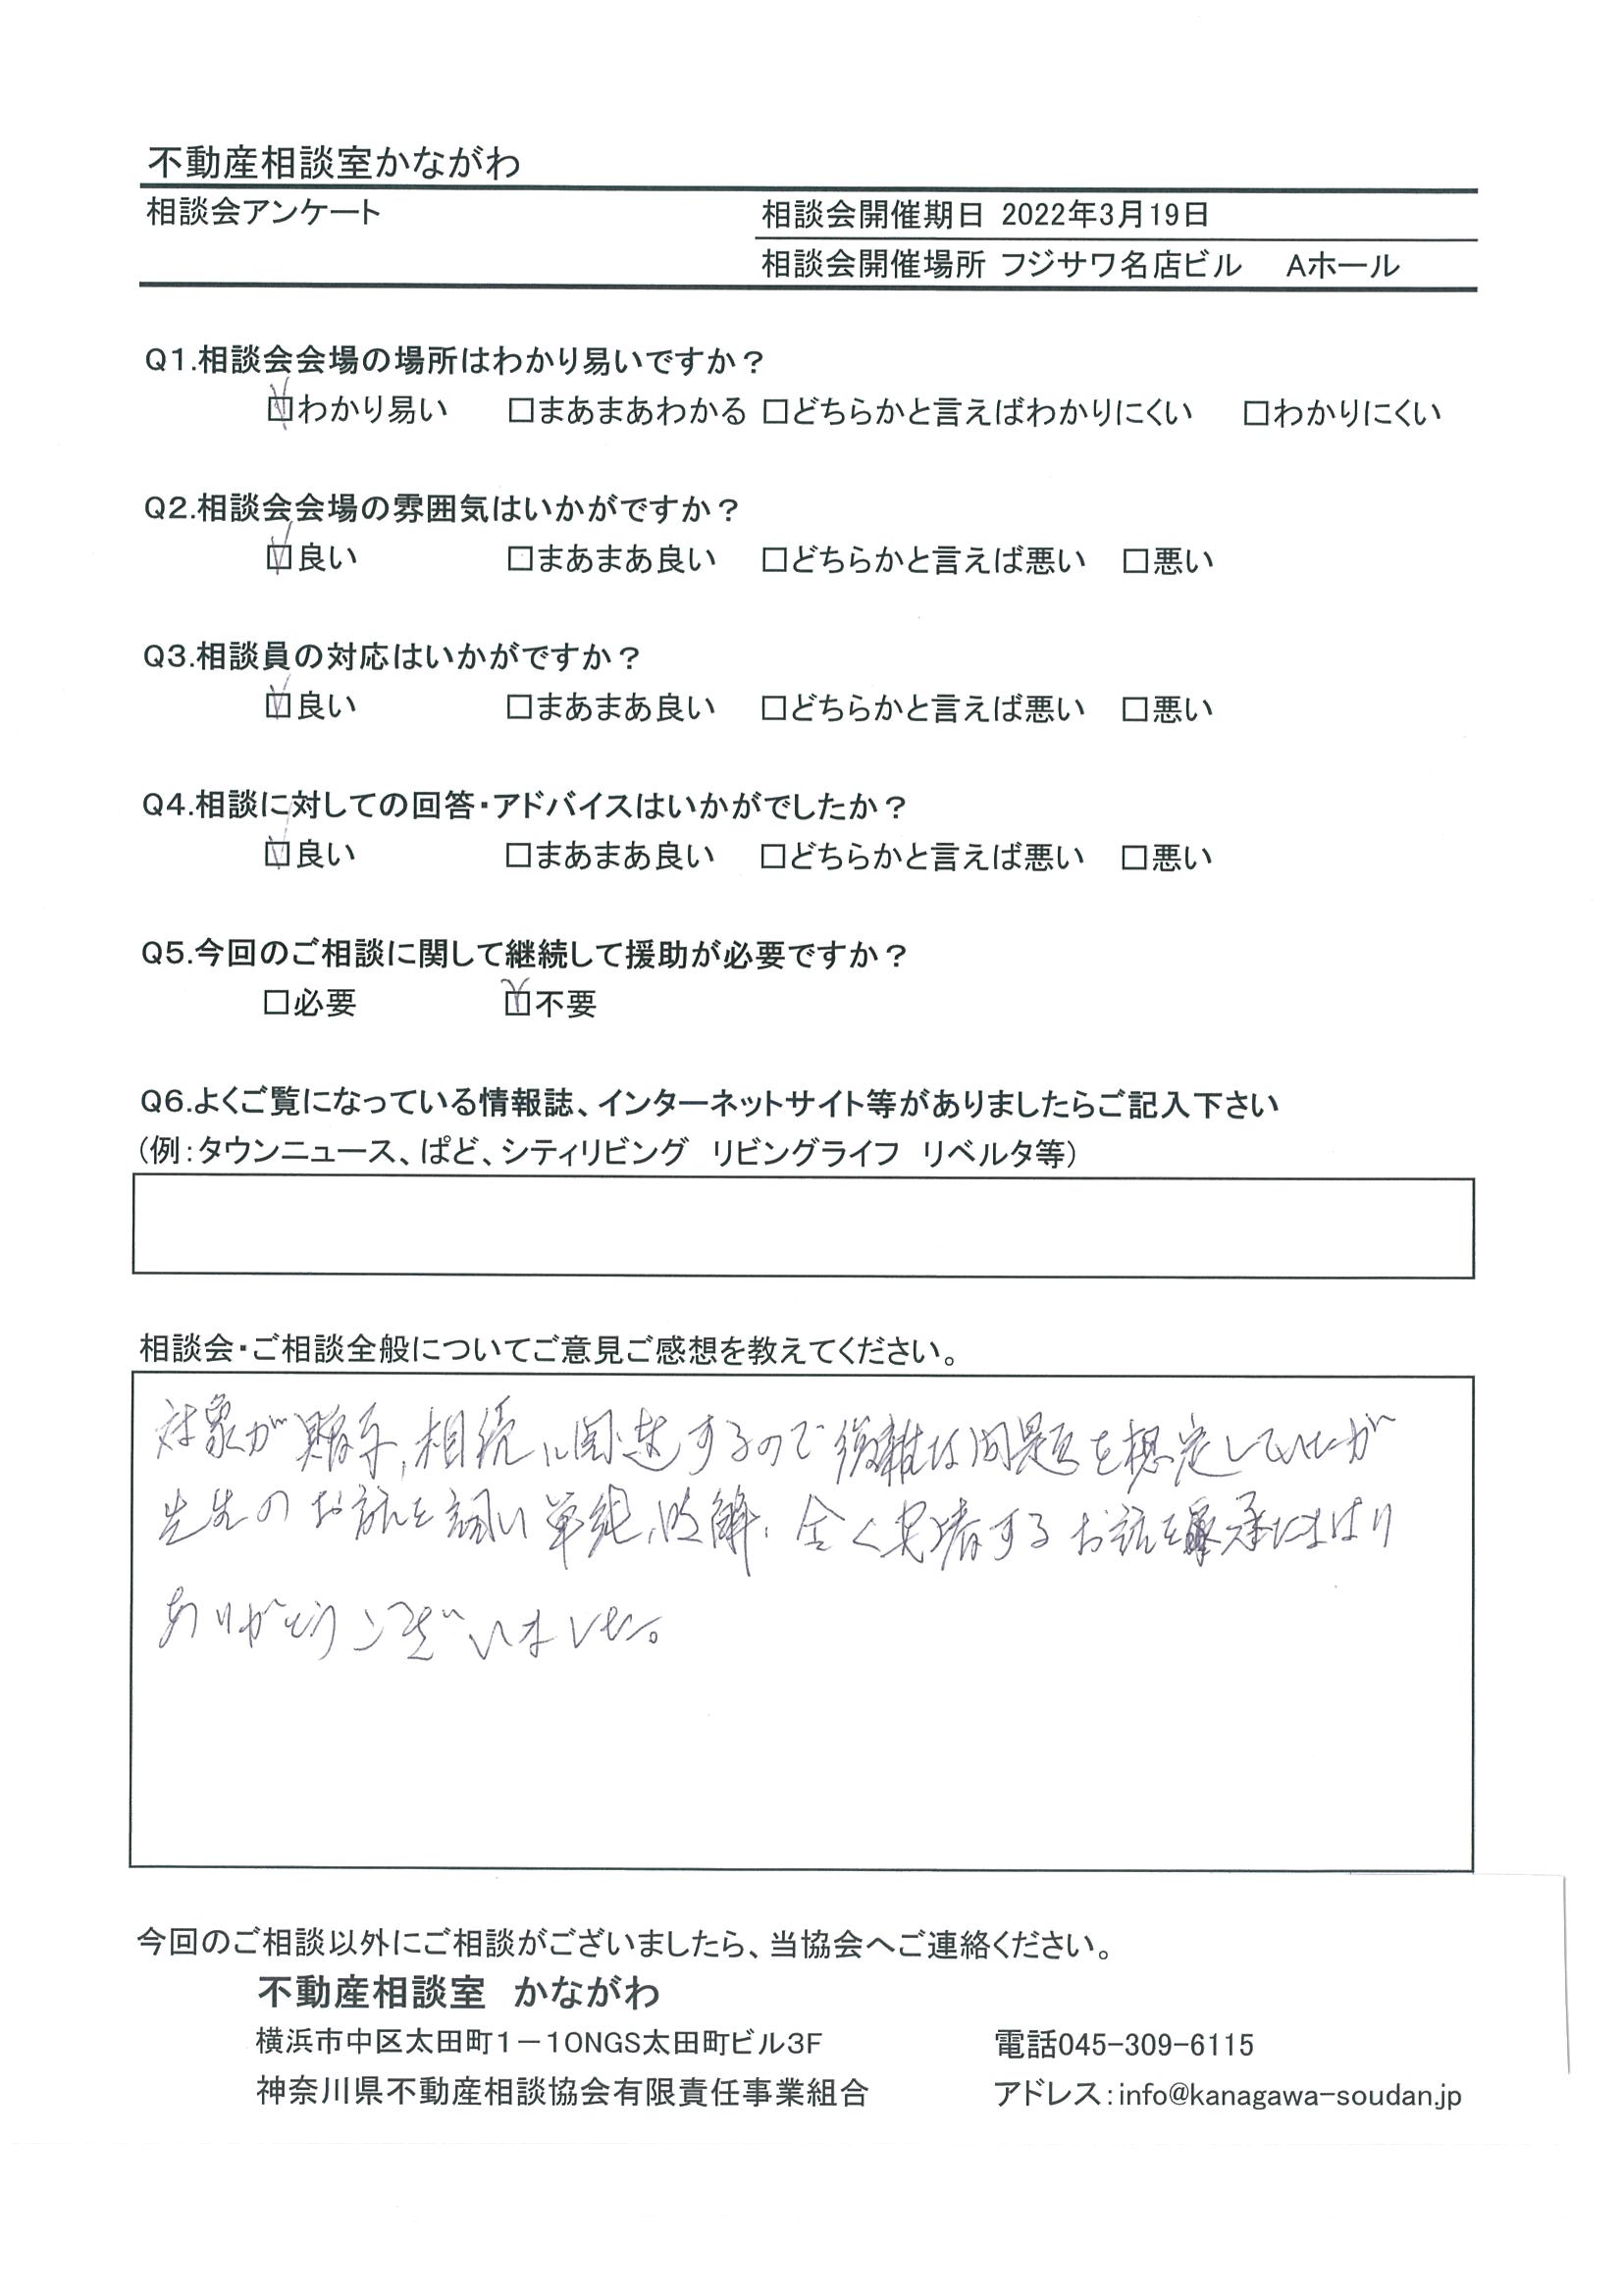 不動産相談室かながわ
相談会アンケート
相談会開催期日 2022年3月19日
相談会開催場所 フジサワ名店ビル Aホール
Q1.相談会会場の場所はわかり易いですか？
☑わかり易い □まあまあわかる □どちらかと言えばわかりにくい □わかりにくい
Q2.相談会会場の雰囲気はいかがですか？
☑良い □まあまあ良い □どちらかと言えば悪い □悪い
Q3.相談員の対応はいかがですか？
☑良い □まあまあ良い □どちらかと言えば悪い □悪い
Q4.相談に対しての回答・アドバイスはいかがでしたか？
☑良い □まあまあ良い □どちらかと言えば悪い □悪い
Q5.今回のご相談に関して継続して援助が必要ですか？
□必要 ☑不要
Q6.よくご覧になっている情報誌、インターネットサイト等がありましたらご記入下さい
(例：タウンニュース、ぱど、シティリビング リビングライフ リベルタ等)
相談会・ご相談全般についてご意見ご感想を教えてください。
対象が贈与,相続に関連するので複雑な問題を想定していたが
先生のお話を伺い単純,明解,全く するお話を承たまはり
ありがとうございました。
今回のご相談以外にご相談がございましたら、当協会へご連絡ください。
不動産相談室 かながわ
横浜市中区太田町1－10NGS太田町ビル3F 電話045-309-6115
神奈川県不動産相談協会有限責任事業組合 アドレス：info@kanagawa-soudan.jp